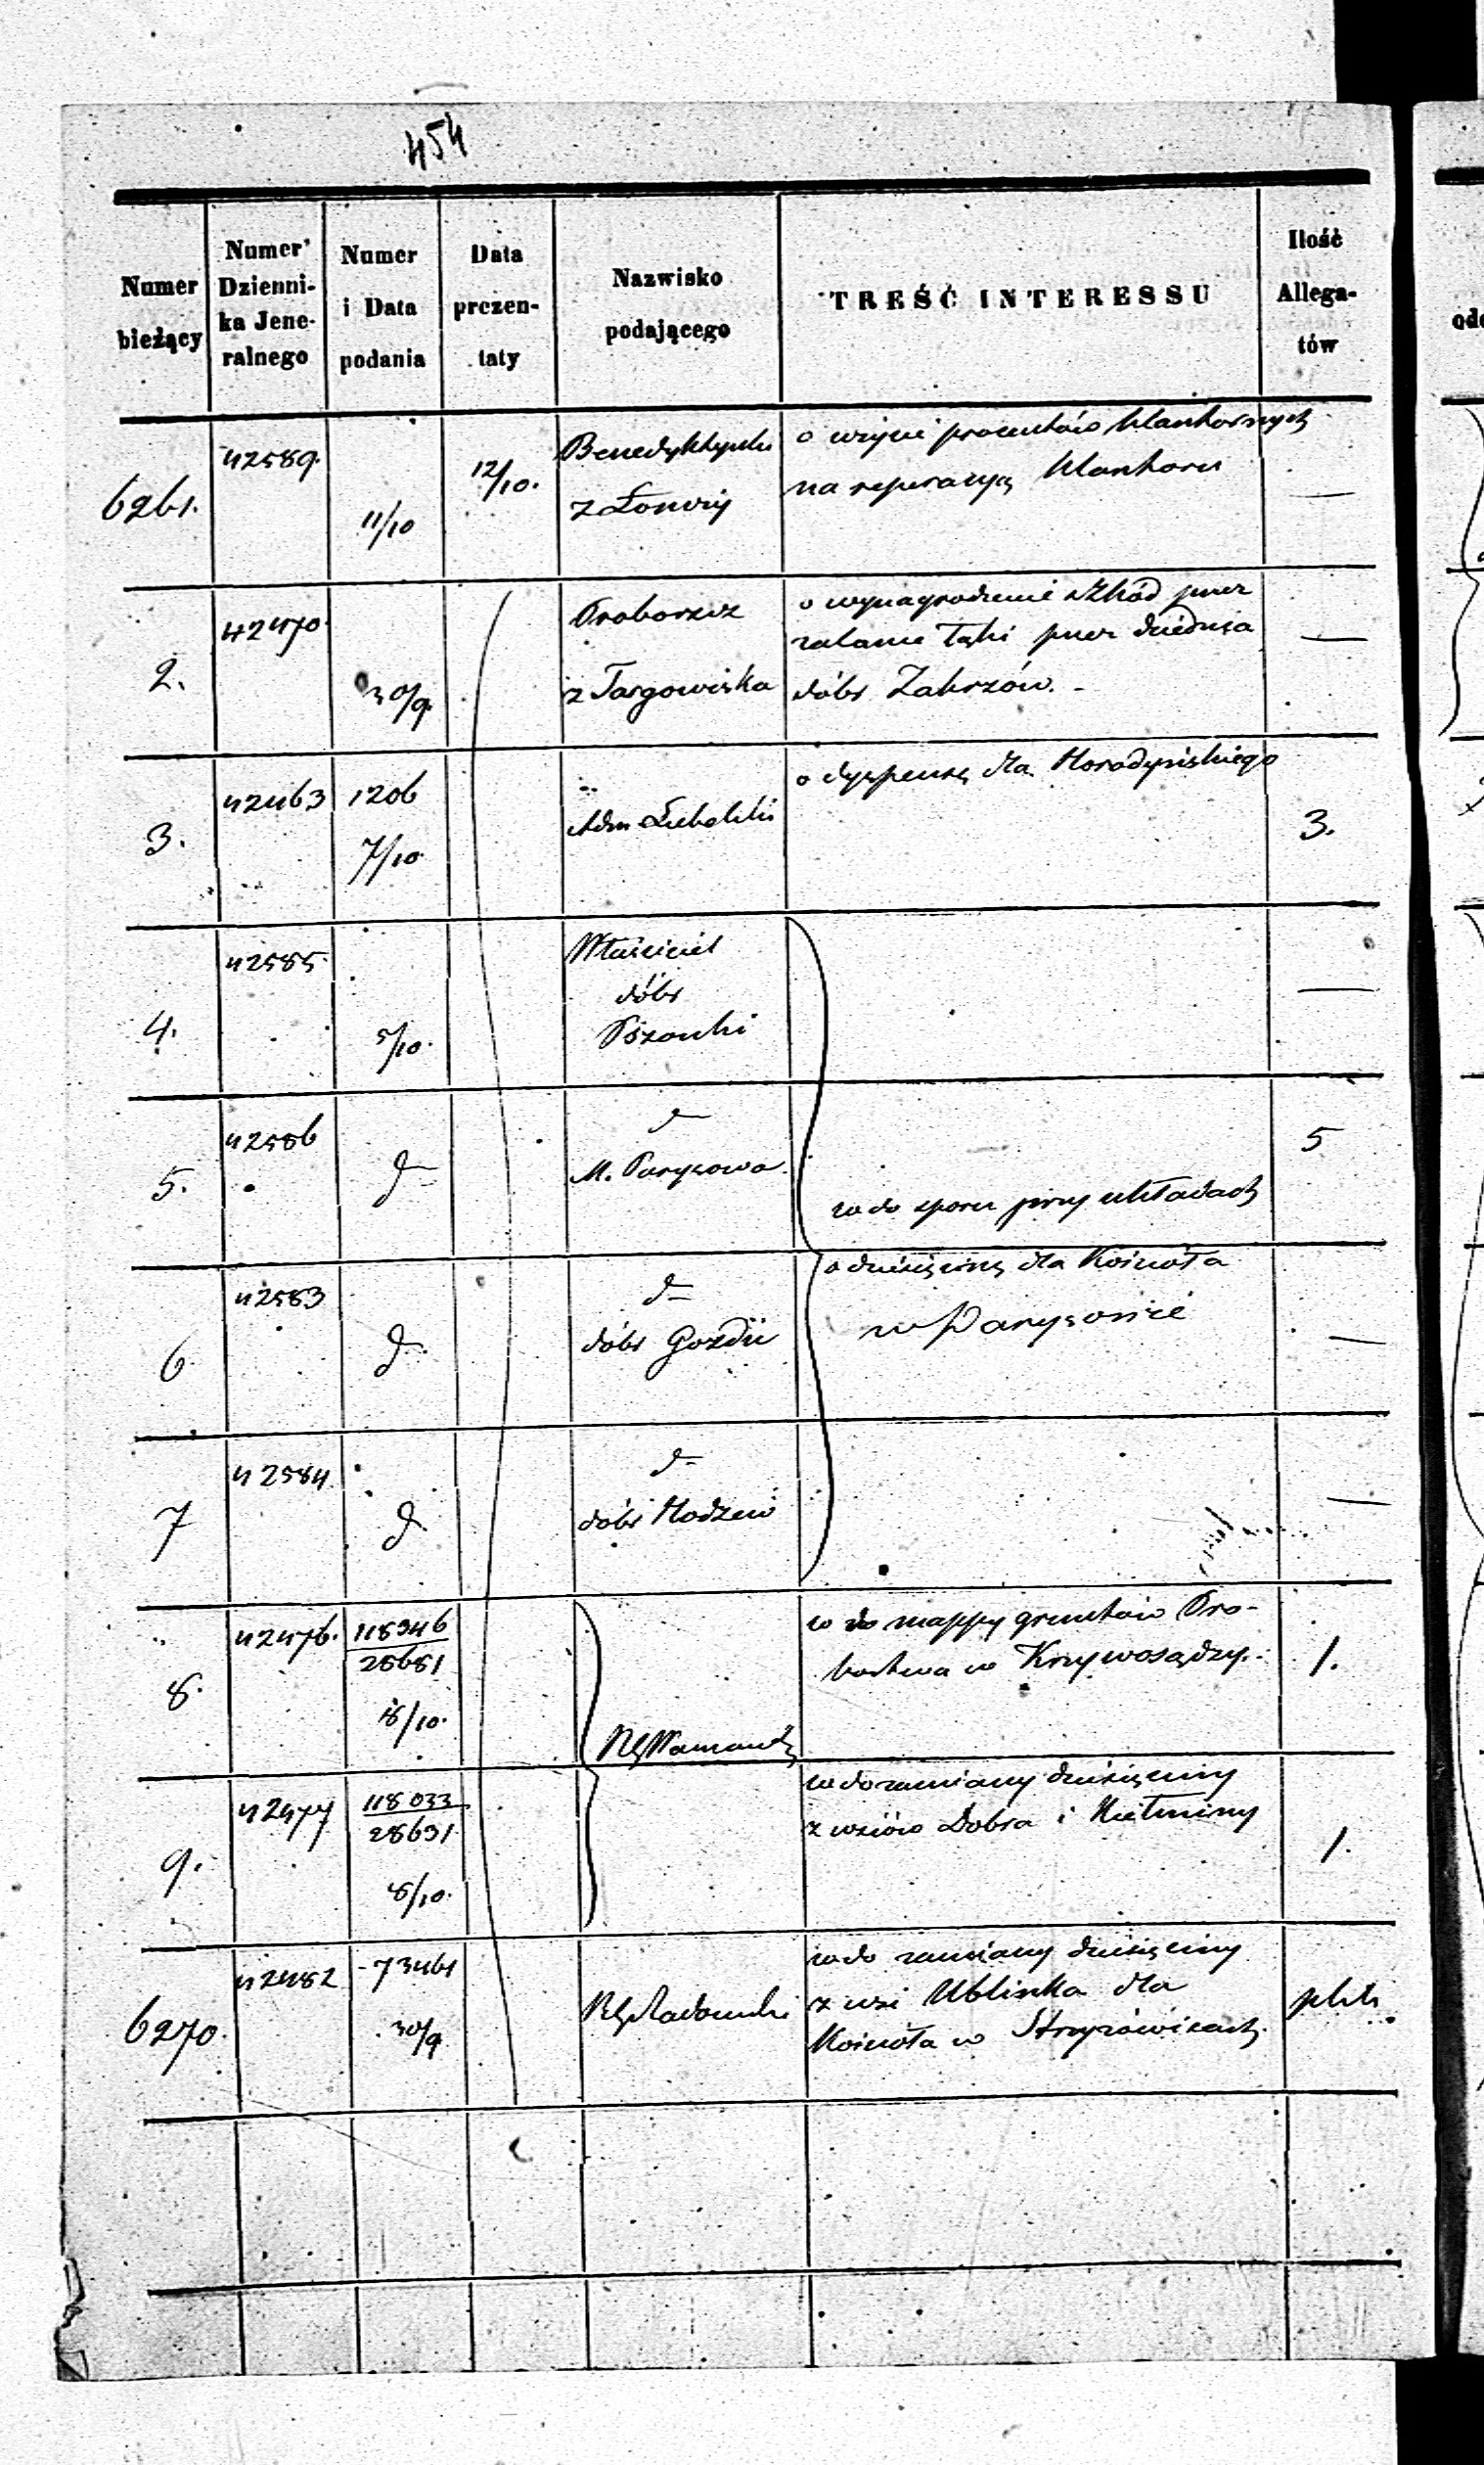 454
Numer bieżący
Numer Dzienni-
ka Jene-
ralnego
Numer
i Data
podania
Data
prezen-
taty
Nazwisko
podającego
TREŚĆ INTERESSU
Ilość
Allega-
tów
6261.
42589.
11/10
12/10.
Benedyktynki
z Łomży
o użycie procentów klasztornych
na reperacyą klasztoru
—
2.
42470
30/9.
Proboszcz
z Targowiska
o wynagrodzenie szkód przez
zalanie łąki przez dziedzica
dóbr Zakrzów. -
—
3.
42463
1206
7/10.
Adm Lubelski
o dyspensę dla Horodyńskiego
3.
4.
42585.
5/10.
Właściciel
dóbr
—
5.
42586
d
d
M. Parysowa.
5
w do sporu przy układach
6
42583
d
d
dóbr Gozdu
o dziesięcinę dla Kościoła
w Parysowie
—
7
42584
d
d
dóbr
—
8.
42476.
118946
28681
8/10.
Rz Warszawski
w do mappy gruntów Pro-
bostwa w Krzywosądzy.
1.
9.
42477
118033
28631
8/10.
w do zamiany dziesięciny
z wsiów Dobra i
1.
6270.
42482
73461
30/9
Rz Radomski
w do zamiany dziesięciny
z wsi Ublinka dla
Kościoła w Stryżowicach.